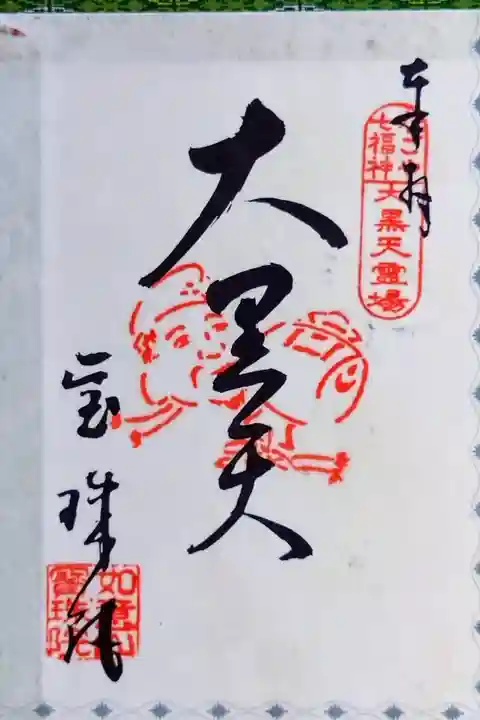 奉拝
七福神
大黒天霊場
大黒天
宝珠院
如意山
寶珠院